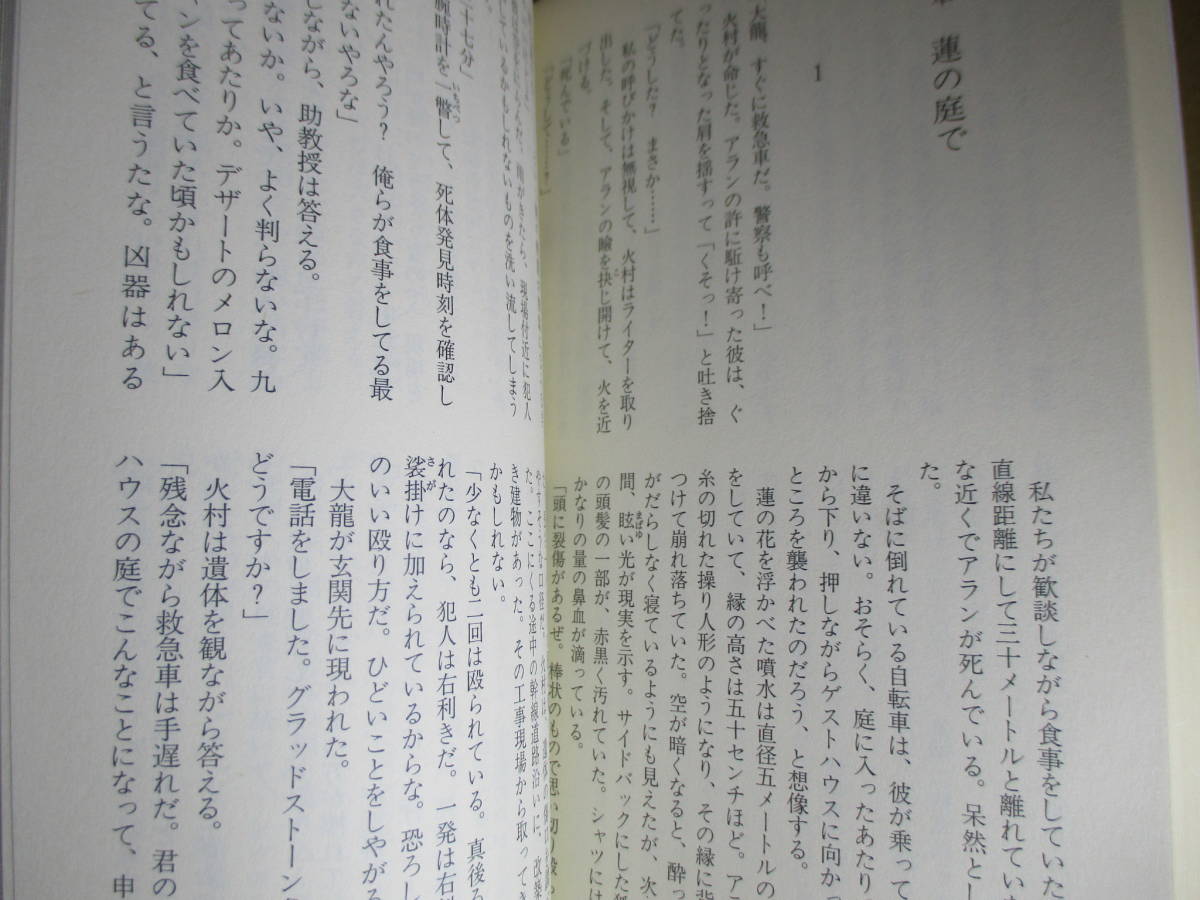 蓮の庭で
1
大龍、すぐに救急車だ。警察も呼べ！」
火村が命じた。アランの許に駈け寄った彼は、ぐ
ったりとなった肩を揺すって「くそっ！」と吐き捨
てた。
「どうした？　まさか……」
私の呼びかけは無視して、火村はライターを取り
出した。そして、アランの瞼を抉じ開けて、火を近
づける。
「死んでいる」
「どうして……？」
私たちが歓談しながら食事をしていた
直線距離にして三十メートルと離れていま
な近くでアランが死んでいる。呆然とし
た。
そばに倒れている自転車は、彼が乗って
に違いない。おそらく、庭に入ったあたり
から下り、押しながらゲストハウスに向かっ
ところを襲われたのだろう、と想像する。
蓮の花を浮かべた噴水は直径五メートルの
をしていて、縁の高さは五十センチほど。ア
糸の切れた操り人形のようになり、その縁に背
つけて崩れ落ちていた。空が暗くなると、酔っ
がだらしなく寝ているようにも見えたが、次
間、眩い光が現実を示す。サイドバックにした
の頭髪の一部が、赤黒く汚れていた。シャツには
かなりの量の鼻血が滴っている。
「頭に裂傷があるぜ。棒状のもので思い切り殴
んだ。雨がきたら、現場付近に犯人
しているかもしれないものを洗い流してしまう
十七分」
腕時計を一瞥して、死体発見時刻を確認し
れたんやろう？　俺らが食事をしてる最
ないやろな」
しながら、助教授は答える。
ないか。いや、よく判らないな。九
ってあたりか。デザートのメロン入
ンを食べていた頃かもしれない」
てる、と言うたな。凶器はある
た。ここにくる途中の幹線道路沿いに、改築
き建物があった。その工事現場から取ってき
かもしれない。
「少なくとも二回は殴られている。真後ろ
れたのなら、犯人は右利きだ。一発は右
袈裟掛けに加えられているからな。恐ろし
のいい殴り方だ。ひどいことをしやがる
大龍が玄関先に現われた。
「電話をしました。グラッドストーン
どうですか？」
火村は遺体を観ながら答える。
「残念ながら救急車は手遅れだ。君の
ハウスの庭でこんなことになって、申